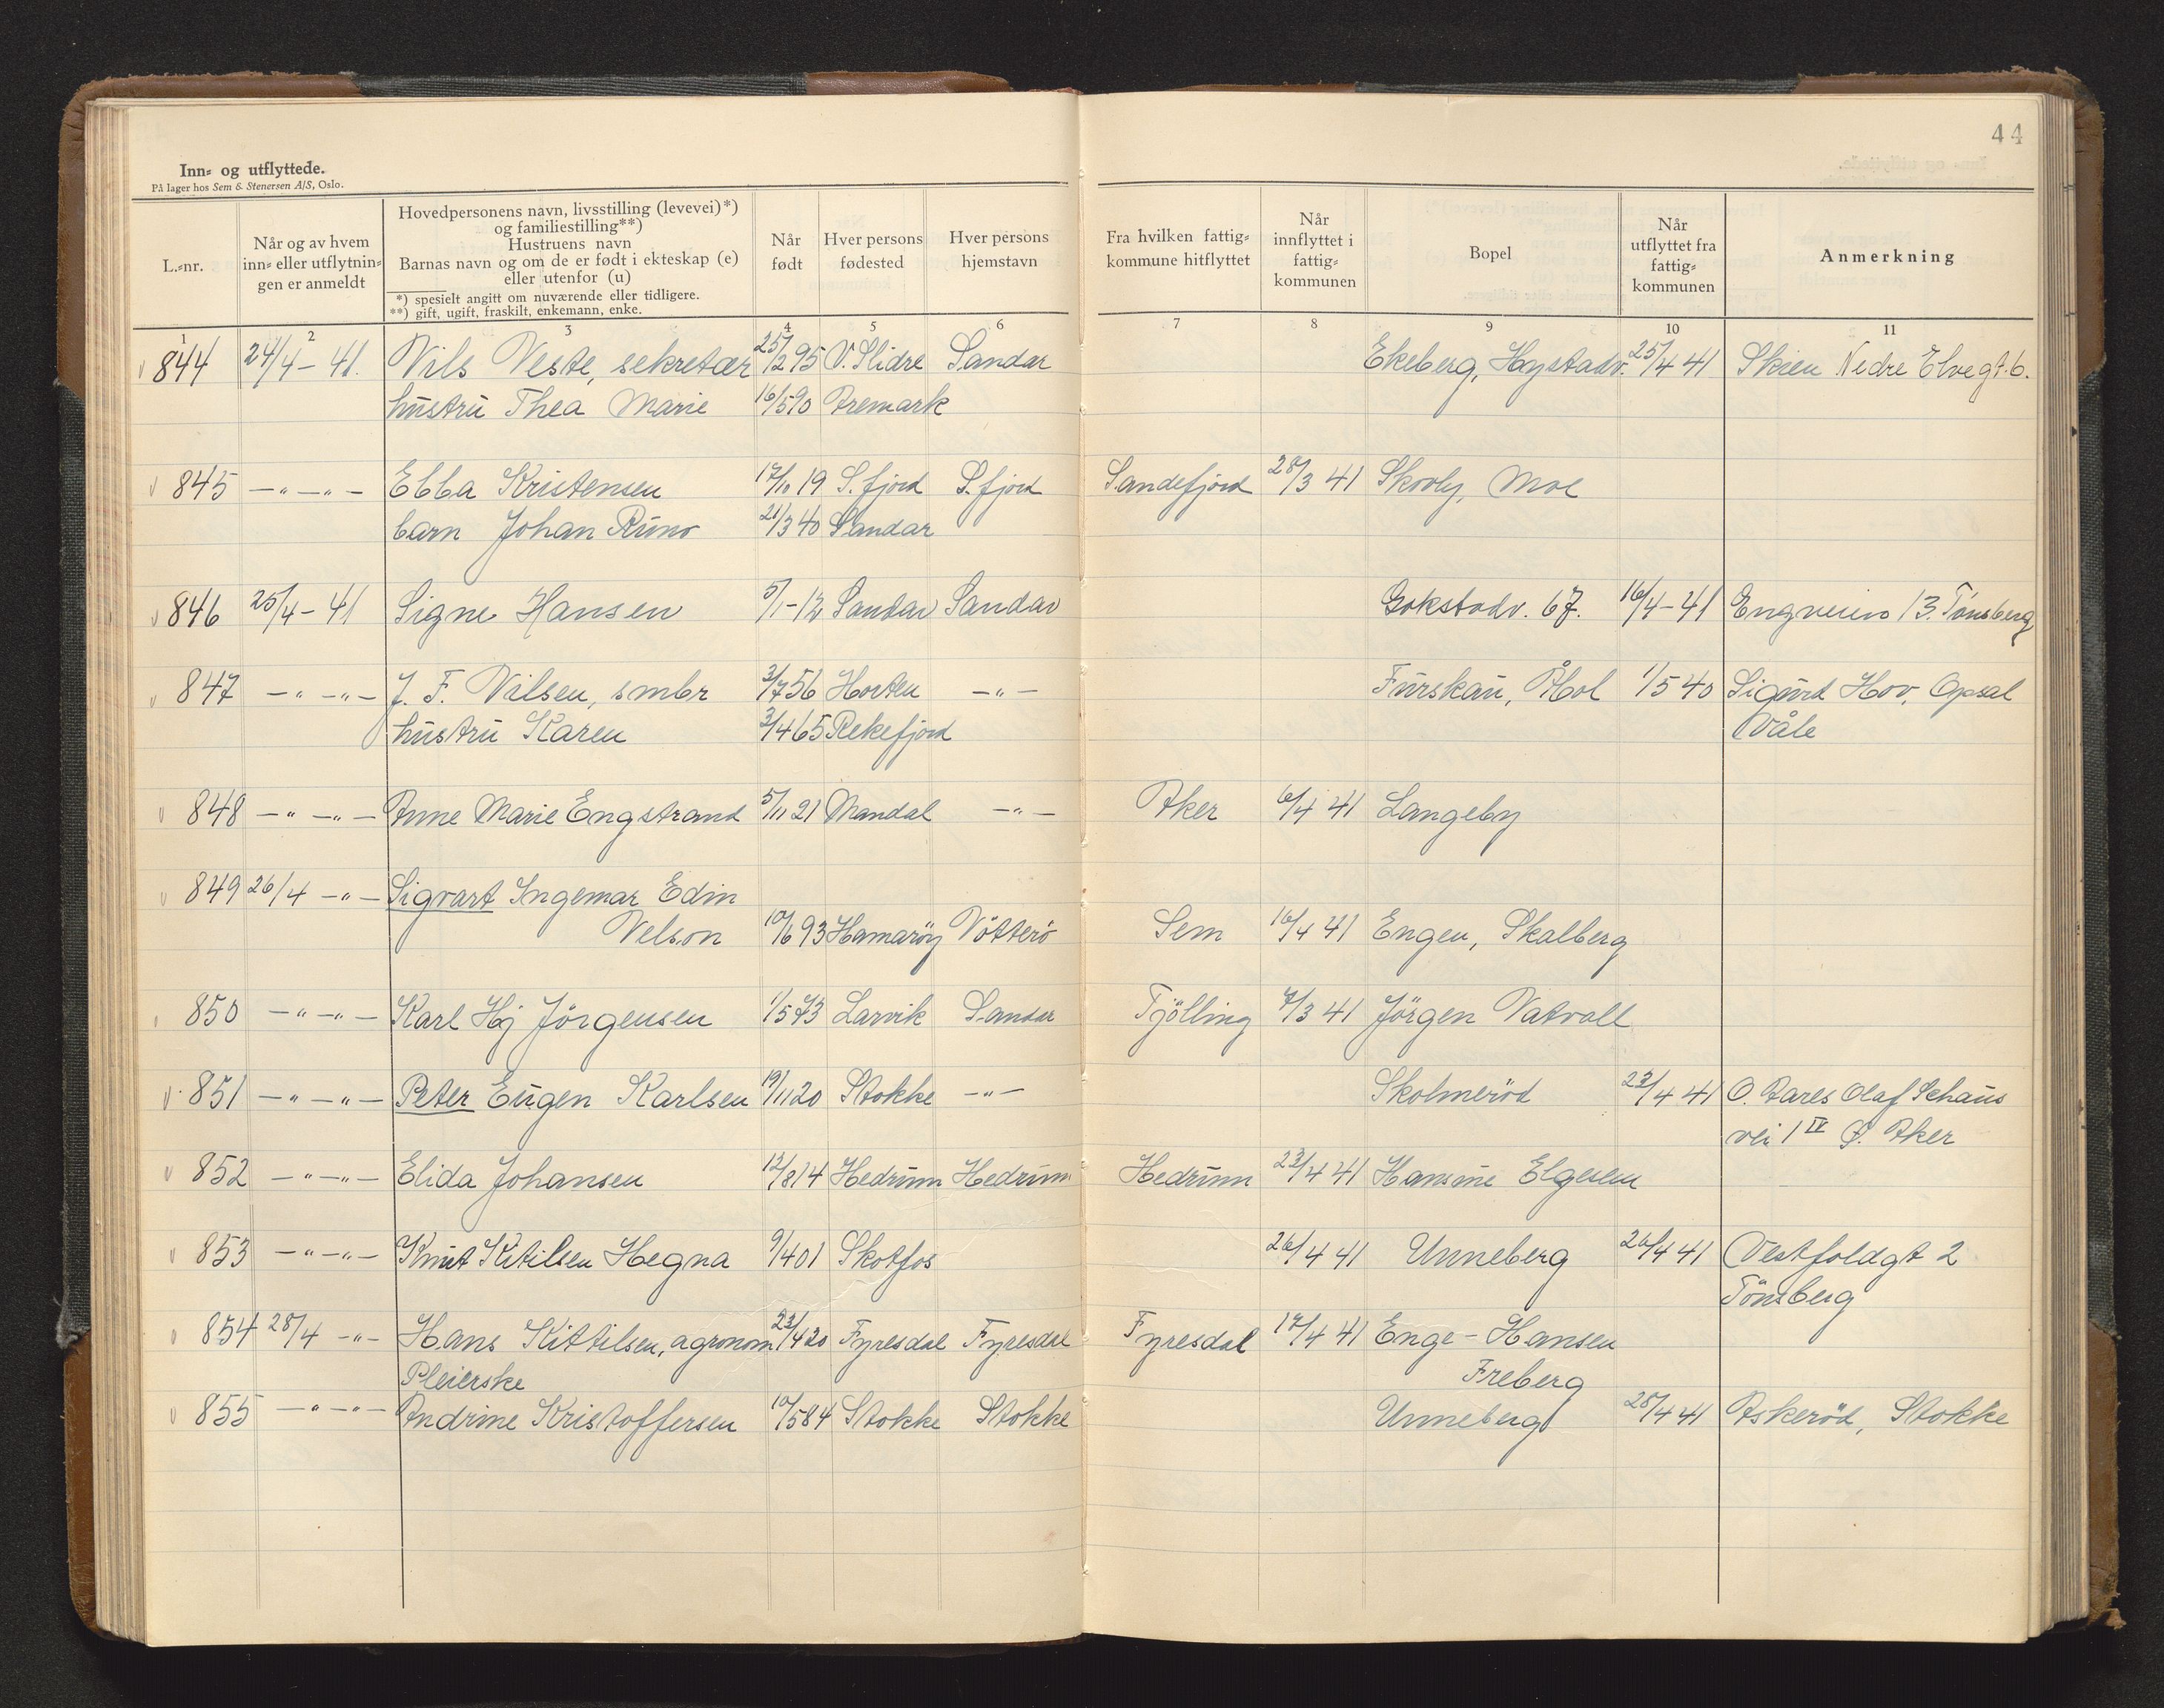 44
Inn= og utflyttede.
På lager hos Sem & Stenersen A/S, Oslo.
L.=nr.
Når og av hvem inn= eller utflytnin= gen er anmeldt
Hovedpersonens navn, livsstilling (levevei)*) og familiestilling**)
Hustruens navn
Barnas navn og om de er født i ekteskap (e) eller utenfor (u)
*) spesielt angitt om nuværende eller tidligere.
**) gift, ugift, fraskilt, enkemann, enke.
Når født
Hver persons fødested
Hver persons hjemstavn
Fra hvilken fattig= kommune hitflyttet
Når innflyttet i fattig= kommunen
Bopel
Når utflyttet fra fattig= kommunen
Anmerkning
1 2 3 4 5 6 7 8 9 10 11
844 24/4 - 41. Nils Veste, sekretær 25/2 95 V. Slidre Sandar Ekeberg, Høystadv. 25/4 41 Skien Nedre Elvegt. 6.
hustru Thea Marie 16/5 90 Aremark
845 -"- -"- Ebba Kristensen 17/10 19 S. fjord S. fjord Sandefjord 28/3 41 Skovly, Moe
barn Johan Runo 21/3 40 Sandar
846 25/4 - 41 Signe Hansen 5/1 - 12 Sandar Sandar Gokstadv. 67. 16/4 - 41 Engveien 13. Tönsberg
847 -"- -"- J. F. Nilsen, smbr 3/7 56 Horten -"- Furskau, Åbol 1/5 40 Sigurd Hov, Opsal
hustru Karen 3/4 65 Rekefjord Våle
848 -"- -"- Anne Marie Engstrand 5/11 21 Mandal -"- Aker 6/4 41 Langeby
849 26/4 -"- Sigvart Ingemar Edin
Nelson 10/6 93 Hamaröy Nötterö Sem 16/4 41 Engen, Skalberg
850 -"- -"- Karl Hj Jörgensen 1/5 73 Larvik Sandar Tjölling 7/3 41 Jörgen Natvall
851 -"- -"- Peter Eugen Karlsen 19/11 20 Stokke -"- Skolmeröd 23/4 41 O. Aares Olaf Schaus
vei 1 IV Ø. Aker
852 -"- -"- Elida Johansen 12/8 14 Hedrum Hedrum Hedrum 23/4 41 Hansine Elgesem
853 -"- -"- Knut Kitilsen Hegna 9/4 01 Skotfos 26/4 41 Unneberg 26/4 41 Vestfoldgt 2
Tönsberg
854 28/4 -"- Hans Kittilsen, agronom 23/4 20 Fyresdal Fyresdal Fyresdal 17/4 41 Enge - Hansen
Pleierske Freberg
855 -"- -"- Andrine Kristoffersen 10/5 84 Stokke Stokke Unneberg 28/4 41 Askeröd, Stokke